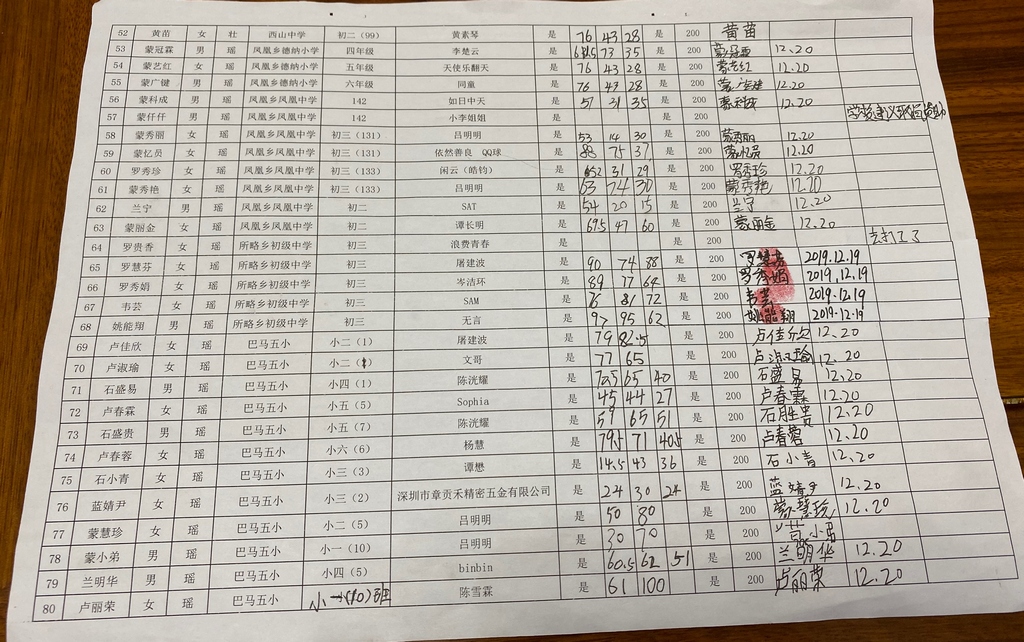 52 黄苗 女 壮 西山中学 初二（99） 黄素琴 是 76 43 28 是 200 黄苗
53 蒙冠霖 男 瑶 凤凰乡德纳小学 四年级 李楚云 是 73 35 是 200 12.20
54 蒙艺红 女 瑶 凤凰乡德纳小学 五年级 天使乐翻天 是 76 43 28 是 200 蒙艺红 12.20
55 蒙广键 男 瑶 凤凰乡德纳小学 六年级 同童 是 76 43 28 是 200 12.20
56 蒙科成 男 瑶 凤凰乡凤凰中学 142 如日中天 是 57 31 35 是 200 蒙科成 12.20
57 蒙仟仟 男 瑶 凤凰乡凤凰中学 142 小李姐姐 是 是 200
58 蒙秀丽 女 瑶 凤凰乡凤凰中学 初三（131） 吕明明 是 53 14 30 是 200 蒙秀丽 12.20
59 蒙忆员 女 瑶 凤凰乡凤凰中学 初三（131） 依然善良 QQ球 是 88 75 37 是 200 蒙忆员 12.20
60 罗秀珍 女 瑶 凤凰乡凤凰中学 初三（133） 闲云（皓钧） 是 31 29 是 200 罗秀珍 12.20
61 蒙秀艳 女 瑶 凤凰乡凤凰中学 初三（133） 吕明明 是 63 74 30 是 200 蒙秀艳 12.20
62 兰宁 男 瑶 凤凰乡凤凰中学 初二 SAT 是 54 20 15 是 200 兰宁 12.20
63 蒙丽金 女 瑶 凤凰乡凤凰中学 初二 谭长明 是 69.5 47 60 是 200 蒙丽金 12.20
64 罗贵香 女 瑶 所略乡初级中学 初三 浪费青春 是 是 200 去打工了
65 罗慧芬 女 瑶 所略乡初级中学 初三 屠建波 是 90 74 88 是 200 罗慧芬 2019.12.19
66 罗秀娟 女 瑶 所略乡初级中学 初三 岑洁环 是 89 77 64 是 200 罗秀娟 2019.12.19
67 韦芸 女 瑶 所略乡初级中学 初三 SAM 是 81 72 是 200 韦芸 2019.12.19
68 姚能翔 男 瑶 所略乡初级中学 初三 无言 是 97 95 62 是 200 姚能翔 2019.12.19
69 卢佳欣 女 瑶 巴马五小 小二（1） 屠建波 是 79 82.5 是 200 卢佳欣 12.20
70 卢淑瑜 女 瑶 巴马五小 文哥 是 77 65 是 200 卢淑瑜 12.20
71 石盛易 男 瑶 巴马五小 小四（1） 陈洸耀 是 70.5 65 40 是 200 石盛易 12.20
72 卢春霖 女 瑶 巴马五小 小五（5） Sophia 是 45 44 27 是 200 卢春霖 12.20
73 石盛贵 男 瑶 巴马五小 小五（7） 陈洸耀 是 59 65 51 是 200 石胜贵 12.20
74 卢春蓉 女 瑶 巴马五小 小六（6） 杨慧 是 79.5 71 40.5 是 200 卢春蓉 12.20
75 石小青 女 瑶 巴马五小 小三（3） 谭懋 是 14.5 43 36 是 200 石小青 12.20
76 蓝婧尹 女 瑶 巴马五小 小三（2） 深圳市章贡禾精密五金有限公司 是 24 30 24 是 200 蓝婧尹 12.20
77 蒙慧珍 女 瑶 巴马五小 小二（5） 吕明明 是 50 80 是 200 蒙慧珍 12.20
78 蒙小弟 男 瑶 巴马五小 小一（10） 吕明明 是 30 70 是 200
79 兰明华 男 瑶 巴马五小 小四（5） binbin 是 60.5 62 51 是 200 兰明华 12.20
80 卢丽荣 女 瑶 巴马五小 小一（10）班 陈雪霖 是 61 100 是 200 卢丽荣 12.20